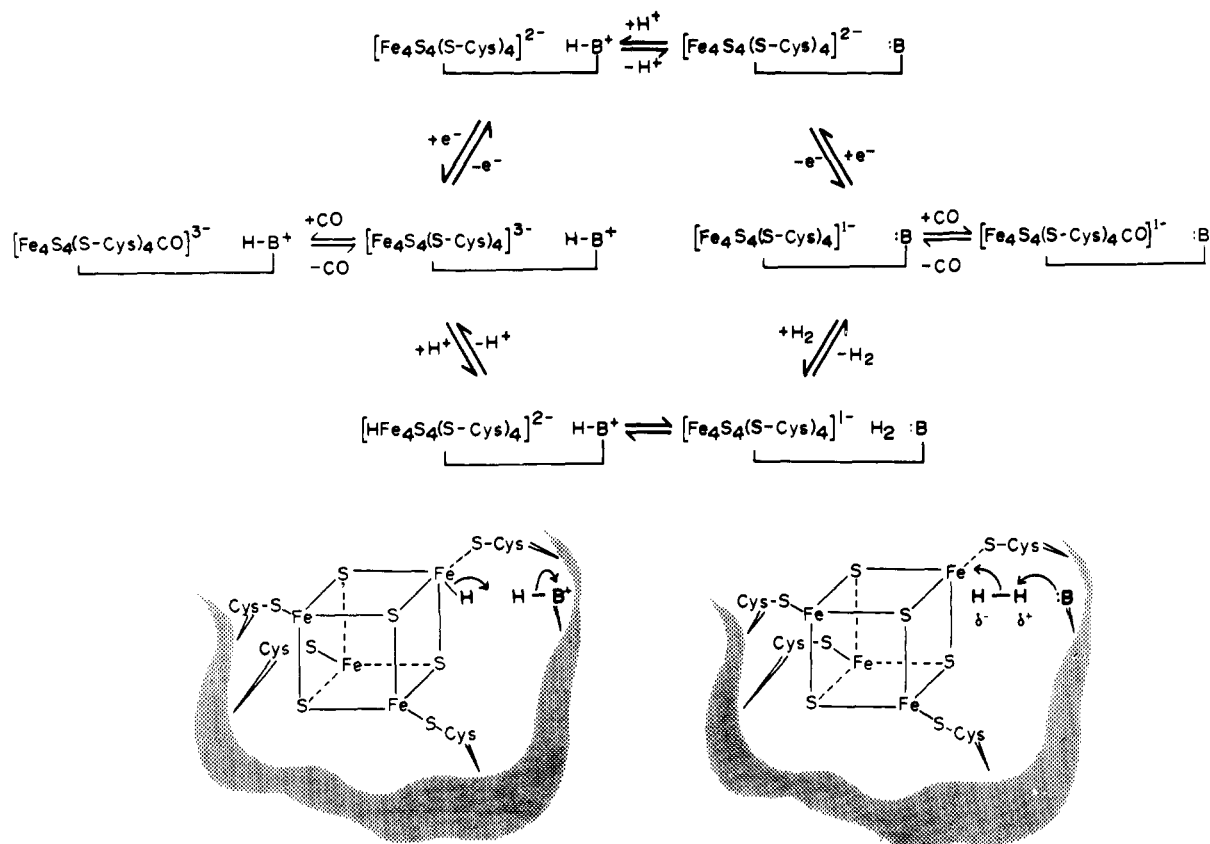 [Fe4S4(S-Cys)4]2- H-B+ +H+ -H+ [Fe4S4(S-Cys)4]2- :B
+e- -e- -e- +e-
[Fe4S4(S-Cys)4CO]3- H-B+ +CO -CO [Fe4S4(S-Cys)4]3- H-B+ [Fe4S4(S-Cys)4]1- :B +CO -CO [Fe4S4(S-Cys)4CO]1- :B
+H+ -H+ +H2 -H2
[HFe4S4(S-Cys)4]2- H-B+ [Fe4S4(S-Cys)4]1- H2 :B
S-Cys S-Cys
S Fe H H-B+ S Fe H-H :B
δ- δ+
Cys-S Fe S Cys-S Fe S
Cys S Fe S Cys -S Fe S
S Fe S Fe
S-Cys S-Cys